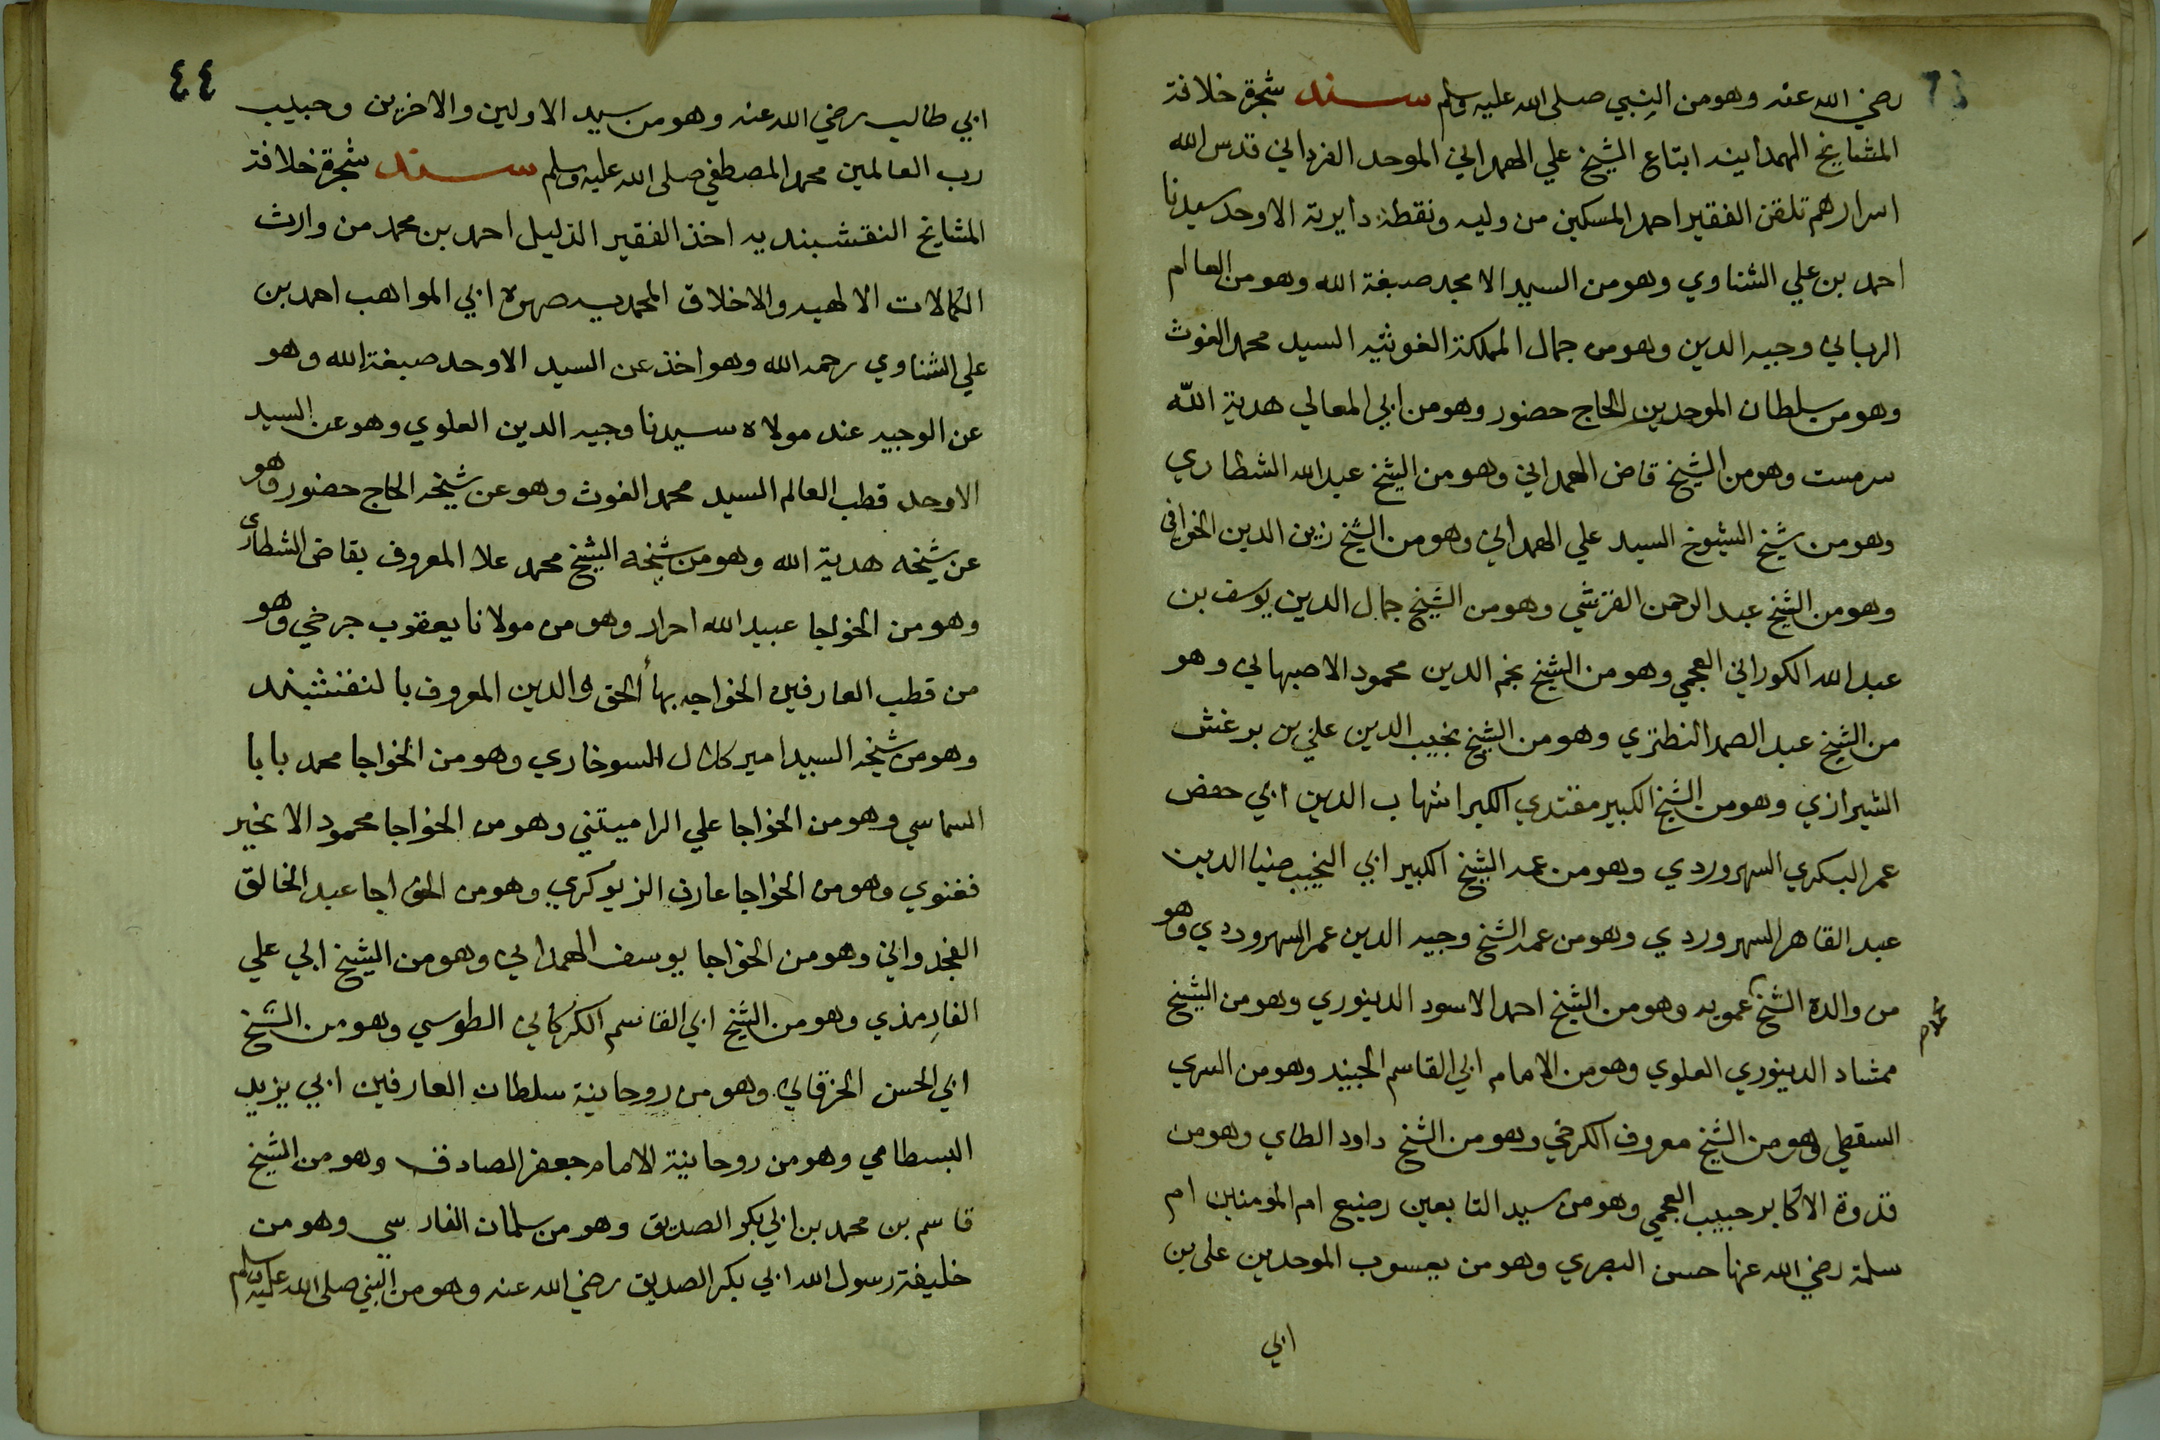 رضي الله عنه وهو من النبي صلى الله عليه وسلم سند شجرة خلافة
المشايخ الهمدانيه اتباع الشيخ علي الهمداني الموحد الفرداني قدس الله
اسرارهم تلقن الفقير احمد المسكين من وليه ونقطة دايرته الاوحد سيدنا
احمد بن علي الشناوي وهو من السيد الامجد صبغة الله وهو من العالم
الرباني وجيه الدين وهو من جمال المملكة الغوثيه السيد محمد الغوث
وهو من سلطان الموحدين الحاج حضور وهو من ابي المعالي هدية الله
سرمست وهو من الشيخ قاض الهمداني وهو من الشيخ عبد الله الشطاري
وهو من شيخ الشيوخ السيد علي الهمداني وهو من الشيخ زين الدين الخوافى
وهو من الشيخ عبد الرحمن القرشي وهو من الشيخ جمال الدين يوسف بن
عبد الله الكوراني العجمي وهو من الشيخ نجم الدين محمود الاصبهاني وهو
من الشيخ عبد الصمد النطنزي وهو من الشيخ نجيب الدين علي بن برغش
الشيرازي وهو من الشيخ الكبير مقتدي الكبرا شهاب الدين ابي حفص
عمر البكري السهروردي وهو من عمه الشيخ الكبير ابي النجيب ضيا الدين
عبد القاهر السهروردي وهو من عمه الشيخ وجيه الدين عمر السهروردي وهو
من والده الشيخ عمويه وهو من الشيخ احمد الاسود الدينوري وهو من الشيخ
ممشاد الدينوري العلوي وهو من الامام ابي القاسم الجنيد وهو من السري
السقطي وهو من الشيخ معروف الكرخي وهو من الشيخ داود الطاي وهو من
قدوة الاكابر حبيب العجمي وهو من سيد التابعين رضيع ام المومنين ام
سلمة رضي الله عنها حسن البصري وهو من يعسوب الموحدين على بن
ابي
٤٤
ابي طالب رضي الله عنه وهو من سيد الاولين والاخرين وحبيب
رب العالمين محمد المصطفي صلى الله عليه وسلم سند شجرة خلافة
المشايخ النقشبنديه اخذ الفقير الذليل احمد بن محمد من وارث
الكمالات الالهيه والاخلاق المحمديه صهره ابي المواهب احمد بن
علي الشناوي رحمه الله وهو اخذ عن السيد الاوحد صبغة الله وهو
عن الوجيه عند مولاه سيدنا وجيه الدين العلوي وهو عن السيد
الاوحد قطب العالم السيد محمد الغوث وهو عن شيخه الحاج حضور وهو
عن شيخه هدية الله وهو من شيخه الشيخ محمد علا المعروف بقاض الشطارى
وهو من الخواجا عبيد الله احرار وهو من مولانا يعقوب جرخي وهو
من قطب العارفين الخواجه بهأ الحق والدين المعروف بالنقشبند
وهو من شيخه السيد امير كلال السوخاري وهو من الخواجا محمد بابا
السماسي وهو من الخواجا علي الراميتني وهو من الخواجا محمود الانخير
فغنوي وهو من الخواجا عارف الزيوكري وهو من الخواجا عبد الخالق
الغجدواني وهو من الخواجا يوسف الهمداني وهو من الشيخ ابي علي
الفارمذي وهو من الشيخ ابي القاسم الكركاني الطوسي وهو من الشيخ
ابي الحسن الخرقاني وهو من روحانية سلطان العارفين ابي يزيد
البسطامي وهو من روحانية الامام جعفر الصادق وهو من الشيخ
قاسم بن محمد بن ابي بكر الصديق وهو من سلمان الفارسي وهو من
خليفة رسول الله ابي بكر الصديق رضي الله عنه وهو من النبي صلى الله عليه وسلم